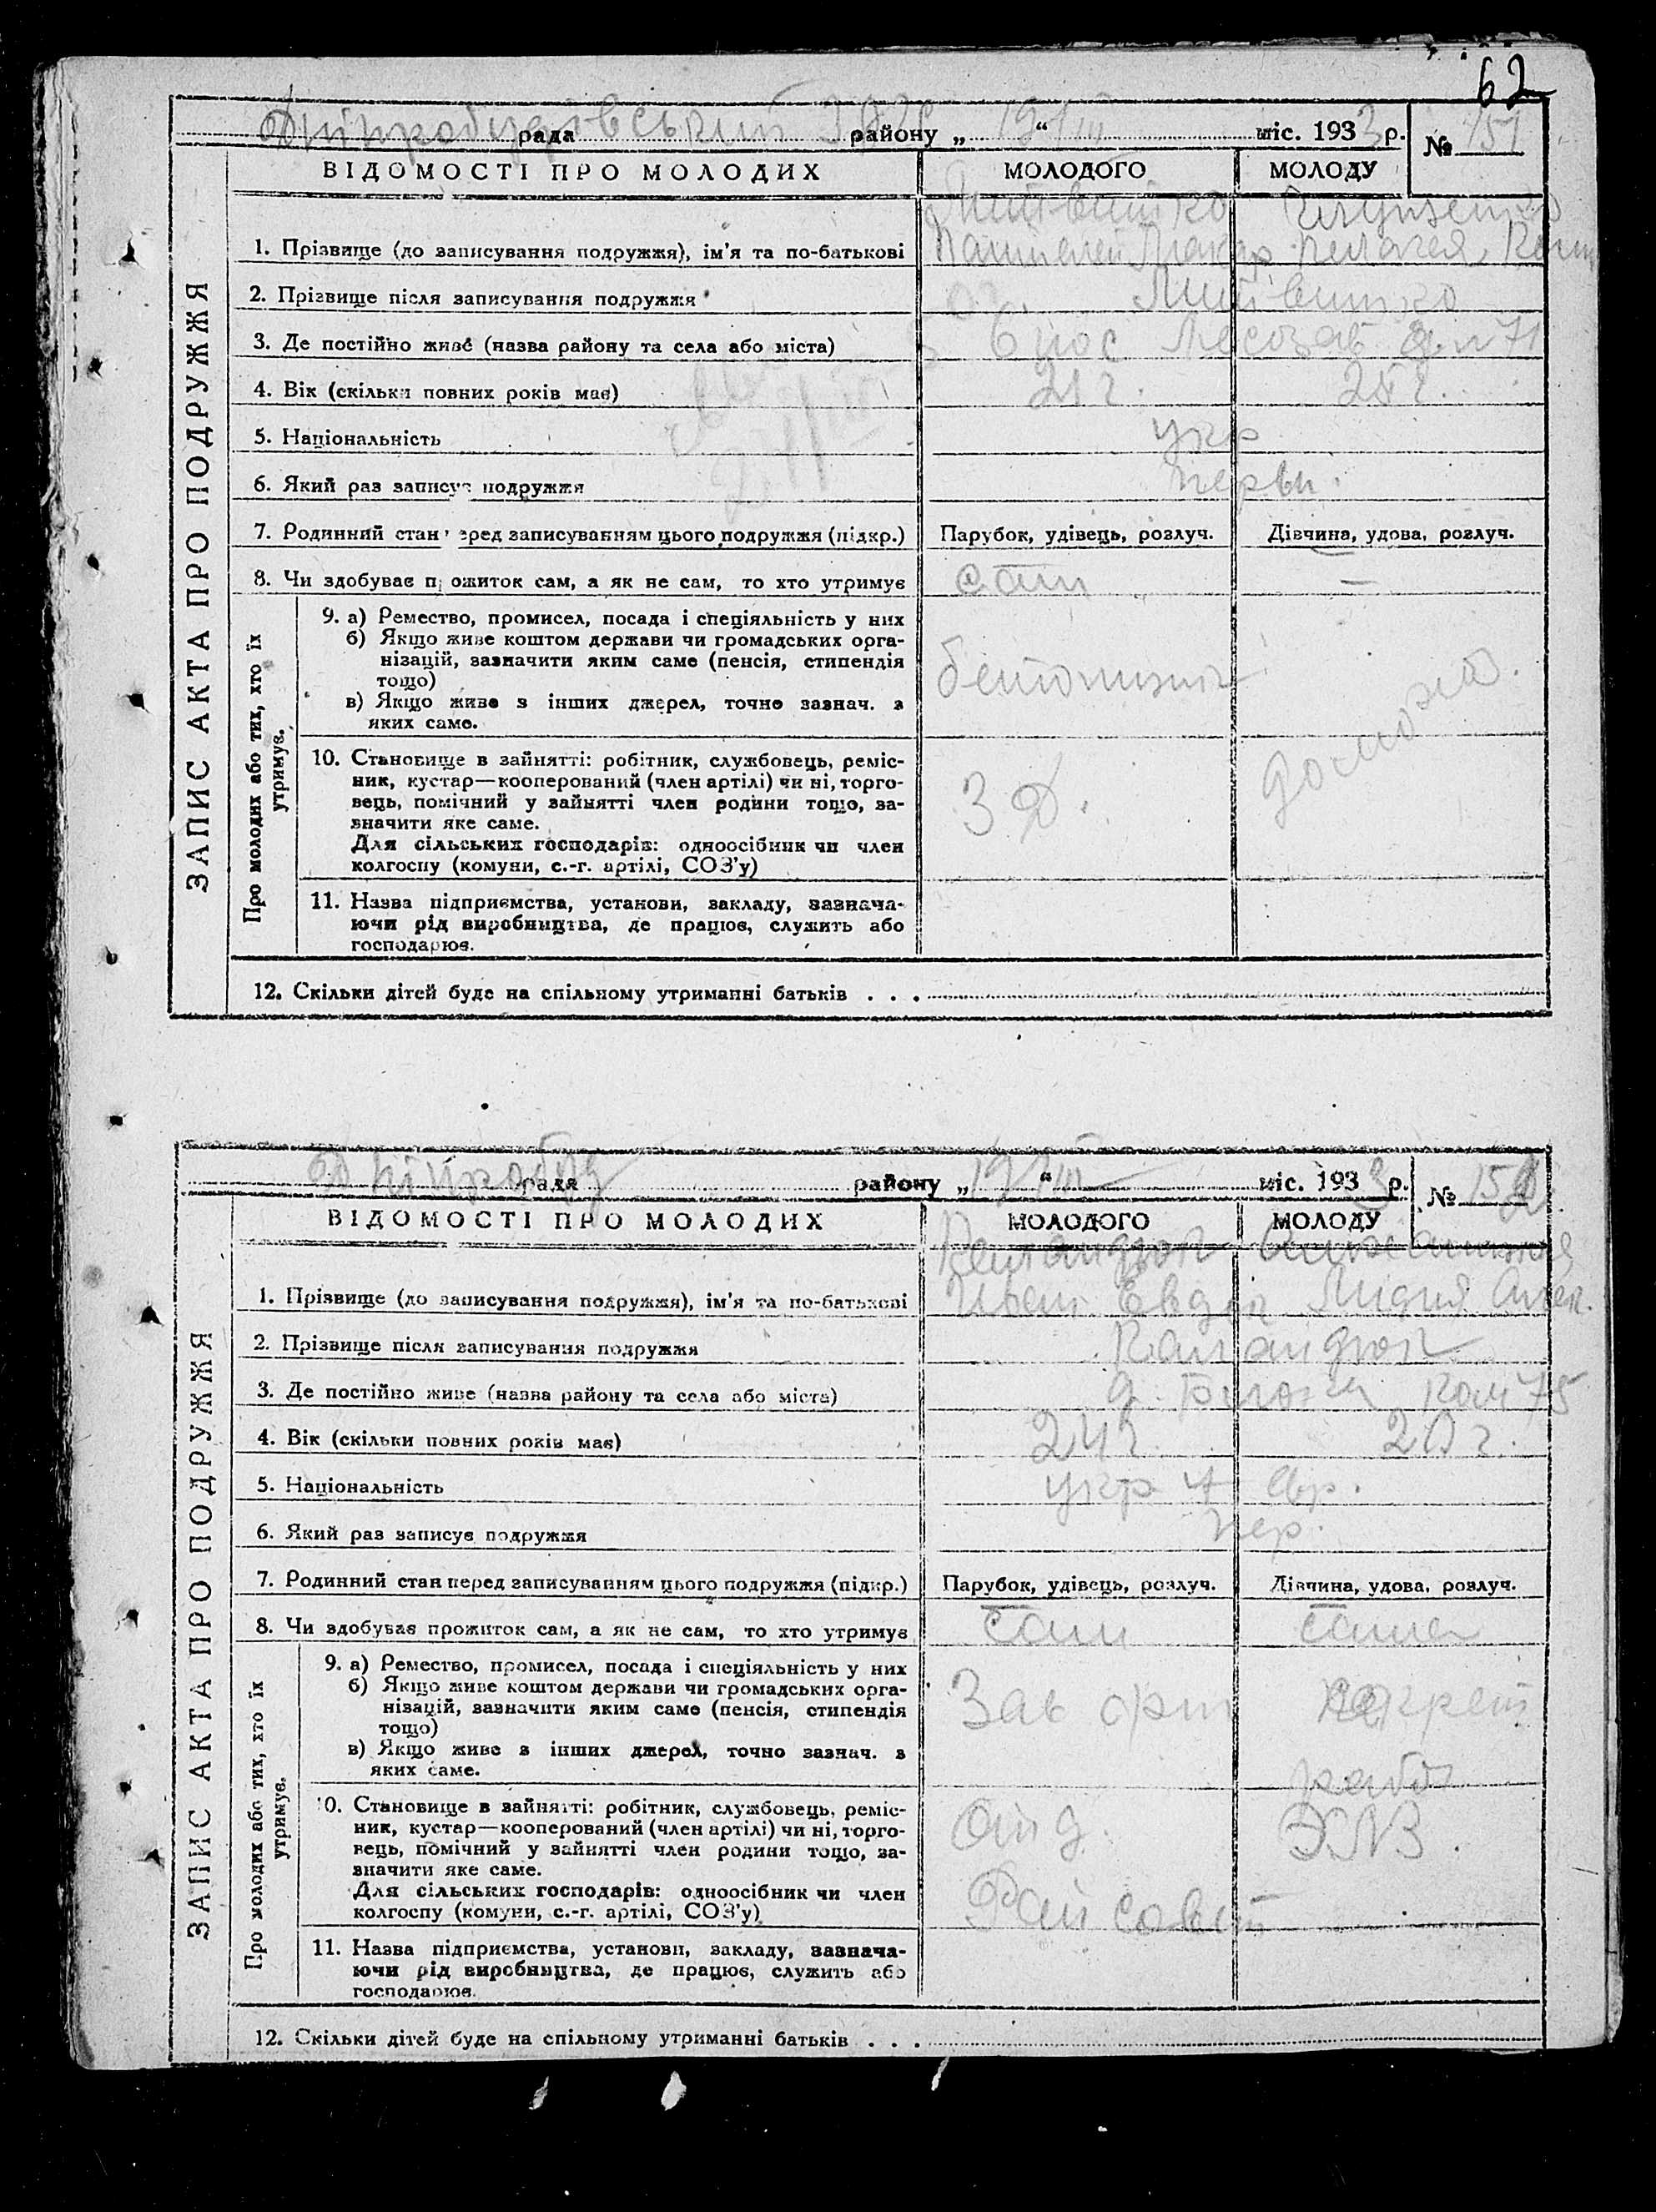 62
Дніпробудівський ЗАГС рада району „ 19/III “ міс. 1933 р. № 151
ВІДОМОСТІ ПРО МОЛОДИХ МОЛОДОГО МОЛОДУ
ЗАПИС АКТА ПРО ПОДРУЖЖЯ
Литвинко
1. Прізвище (до записування подружжя), ім'я та по-батькові Пантелей Макар. Пелагея
2. Прізвище після записування подружжя Литвинко
3. Де постійно живе (назва району та села або міста) 6 пос Лесозав д. n 71
4. Вік (скільки повних років має) 21 г. 25 г.
5. Національність укр
6. Який раз записує подружжя первы.
7. Родинний стан перед записуванням цього подружжя (підкр.) Парубок, удівець, розлуч. Дівчина, удова, розлуч.
8. Чи здобуває прожиток сам, а як не сам, то хто утримує сам –
Про молодих або тих, хто їх утримує.
9. а) Ремество, промисел, посада і спеціяльність у них
б) Якщо живе коштом держави чи громадських орга-
нізацій, зазначити яким саме (пенсія, стипендія бетонщик
тощо)
в) Якщо живе з інших джерел, точно зазнач. з
яких саме.
домохоз.
10. Становище в зайнятті: робітник, службовець, реміс-
ник, кустар—кооперований (член артілі) чи ні, торго-
вець, помічний у зайнятті член родини тощо, за-
значити яке саме.
Для сільських господарів: одноосібник чи член
колгоспу (комуни, с.-г. артілі, СОЗ'у)
11. Назва підприємства, установи, закладу, зазнача-
ючи рід виробництва, де працює, служить або
господарює.
12. Скільки дітей буде на спільному утриманні батьків . . .
Дніпробуд рада району „ 19/III “ міс. 1933 р. № 152
ВІДОМОСТІ ПРО МОЛОДИХ МОЛОДОГО МОЛОДУ
ЗАПИС АКТА ПРО ПОДРУЖЖЯ
1. Прізвище (до записування подружжя), ім'я та по-батькові Иван Евдок Лидия Алек.
2. Прізвище після записування подружжя
3. Де постійно живе (назва району та села або міста) ком 75
4. Вік (скільки повних років має) 24 г. 20 г.
5. Національність укр + евр.
6. Який раз записує подружжя пер.
7. Родинний стан перед записуванням цього подружжя (підкр.) Парубок, удівець, розлуч. Дівчина, удова, розлуч.
8. Чи здобуває прожиток сам, а як не сам, то хто утримує сам сама
Про молодих або тих, хто їх утримує.
9. а) Ремество, промисел, посада і спеціяльність у них
б) Якщо живе коштом держави чи громадських орга-
нізацій, зазначити яким саме (пенсія, стипендія Зав орг
тощо)
в) Якщо живе з інших джерел, точно зазнач. з
яких саме.
10. Становище в зайнятті: робітник, службовець, реміс-
ник, кустар—кооперований (член артілі) чи ні, торго- отд.
вець, помічний у зайнятті член родини тощо, за-
значити яке саме.
Для сільських господарів: одноосібник чи член
колгоспу (комуни, с.-г. артілі, СОЗ'у) Рай совет
11. Назва підприємства, установи, закладу, зазнача-
ючи рід виробництва, де працює, служить або
господарює.
12. Скільки дітей буде на спільному утриманні батьків . . .